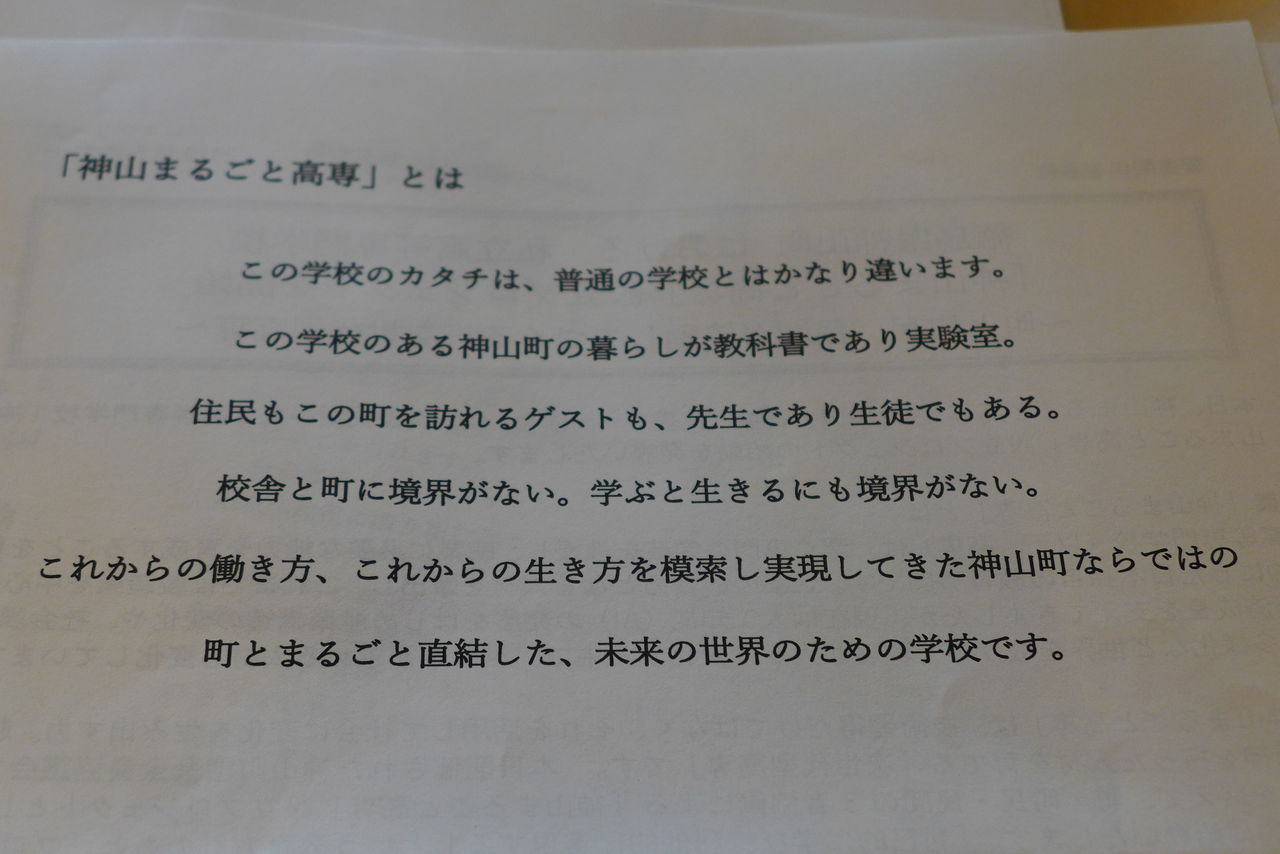 「神山まるごと高専」とは
この学校のカタチは、普通の学校とはかなり違います。
この学校のある神山町の暮らしが教科書であり実験室。
住民もこの町を訪れるゲストも、先生であり生徒でもある。
校舎と町に境界がない。学ぶと生きるにも境界がない。
これからの働き方、これからの生き方を模索し実現してきた神山町ならではの
町とまるごと直結した、未来の世界のための学校です。